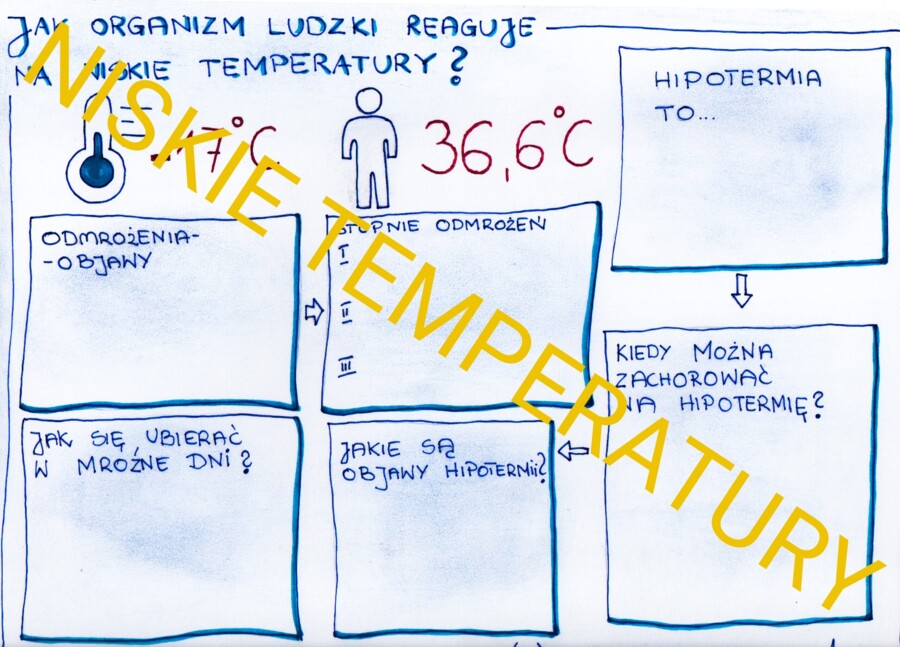 JAK ORGANIZM LUDZKI REAGUJE
NA NISKIE TEMPERATURY?
36,6°C
HIPOTERMIA
TO...
ODMROŻENIA-
-OBJAWY
STOPNIE ODMROŻEŃ
I
II
III
KIEDY MOŻNA
ZACHOROWAĆ
NA HIPOTERMIĘ?
JAK SIĘ UBIERAĆ
W MROŹNE DNI?
JAKIE SĄ
OBJAWY HIPOTERMII?
NISKIE TEMPERATURY